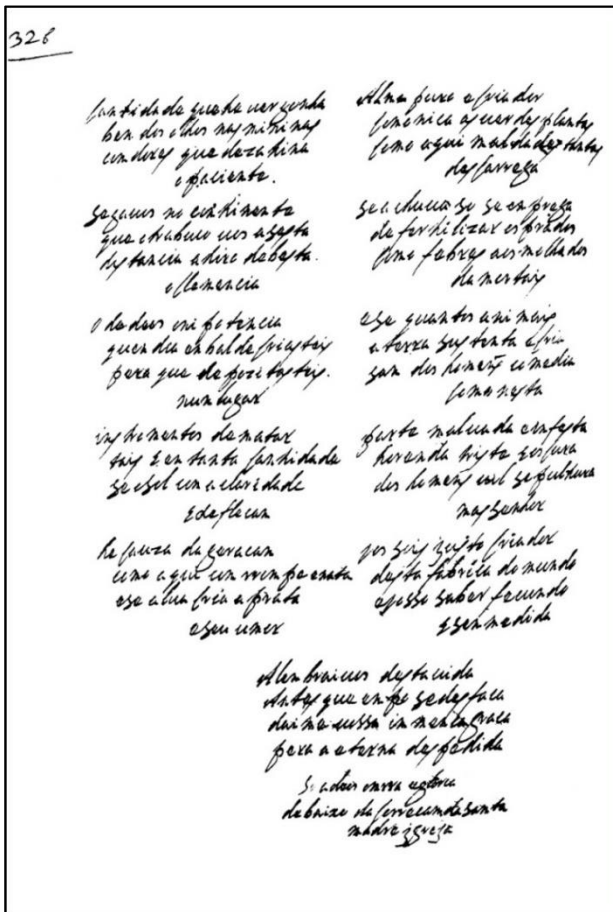 328
cantidade que ha uergonha
ben dos olhos nas mininas
con dores que dezatina
o paciente.
Segauos no continente
que
distancia a tiro de besta.
o clemencia
o de deos onipotencia
quen dia enbalde criasteis
pera que depozitasteis.
num lugar
instromentos de matar
tais & en tanta cantidade
se o sol con a claridade
& deflecan
he cauza da geracan
como a qui con rrompe e mata
e se a lua cria a prata
e seu umor
Alma pura e criador
como nica as uerdes plantas
como aqui maldades tantas
descarrega
se a chuua so se enprega
de fertilizar os prados
como febres aos molhados
da mortais
e se quantos animais
a terra sustenta e cria
san dos homens comedia
como nesta
parte maluada e infesta
horenda triste & escura
dos homens uil sepultura
mas senhor
pois sois justo criador
desta fabrica do mundo
e posso saber fecundo
& sen medida
Alenbraiuos desta uida
Antes que en po se desfaca
daime uossa inmensa graca
pera a eterna despedida
S. a deos onrra e gloria
debaixo da correcam da santa
madre igreja